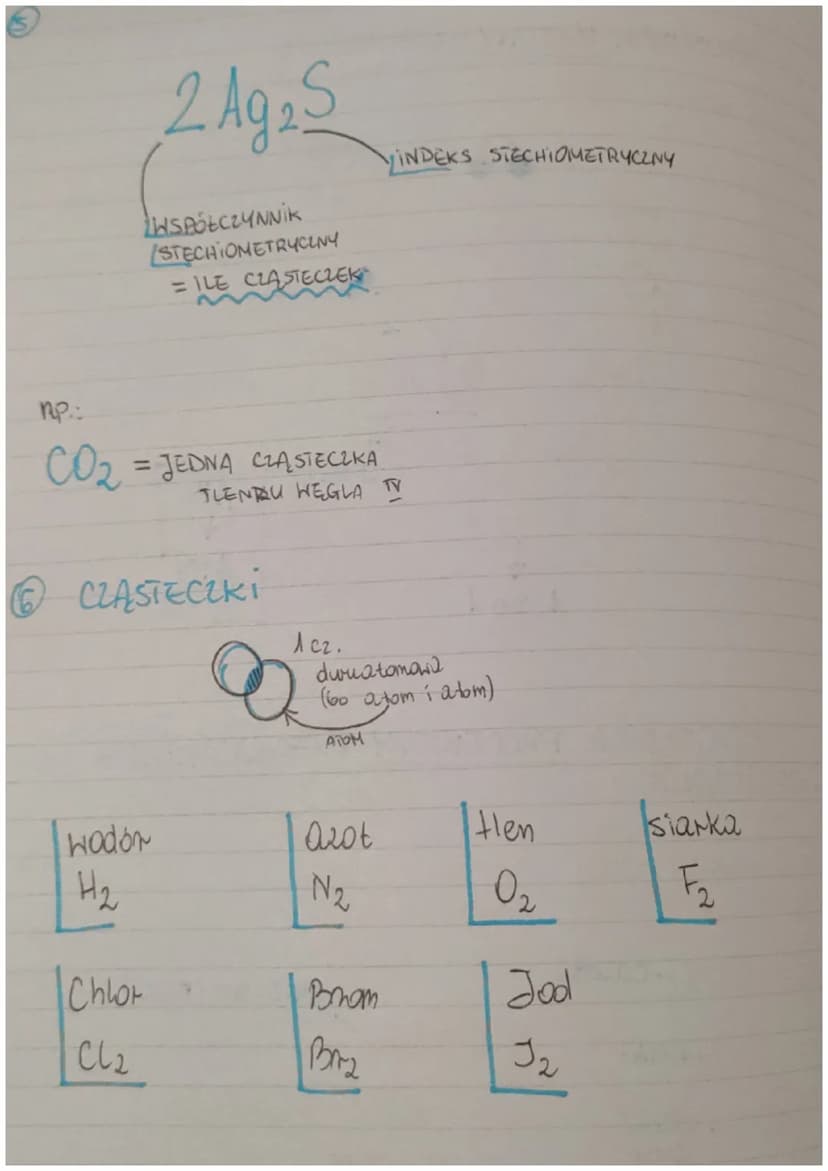 5
2Ag₂S
INDEKS STECHIOMETRYCZNY
WSPÓŁCZYNNIK
STECHIOMETRYCZNY
= ILE CZĄSTECZEK
np.:
CO₂ = JEDNA CZĄSTECZKA
TLENKU WĘGLA IV
6 CZĄSTECZKI
1 cz.
dwuatomowa
(bo atom i atom)
ATOM
wodór
H₂
azot
N₂
tlen
O₂
siarka
F₂
Chlor
Cl₂
Brom
Br₂
Jod
J₂